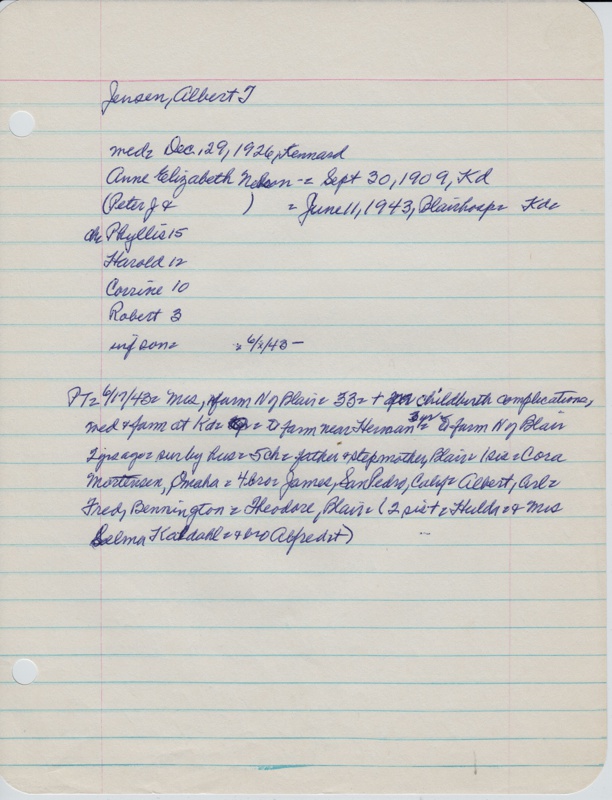 Jensen, Albert T
med= Dec. 29, 1926, Kennard
Anne Elizabeth Nelson -= Sept 30, 1909, Kd
(Peter J & ) = June 11, 1943, Blairhosp= Kdc
ch= Phyllis 15
Harold 12
Corrine 10
Robert 3
inf son= = 6/ /43 -
PT= 6/17/43= Mrs, farm N of Blair= 33= + childbirth complications,
med & farm at Kd= = to farm near Herman 3 yrs= to farm N of Blair
2 yrs ago= sur by hus= 5ch= father & stepmother, Blair= 1sis= Cora
Mortensen, Omaha= 4bro= James, San Pedro, Calif= Albert, Arl=
Fred, Bennington= Theodore, Blair= (2 sis+= Hulda= & Mrs
Selma Kaldahl= & bro Alfred+)